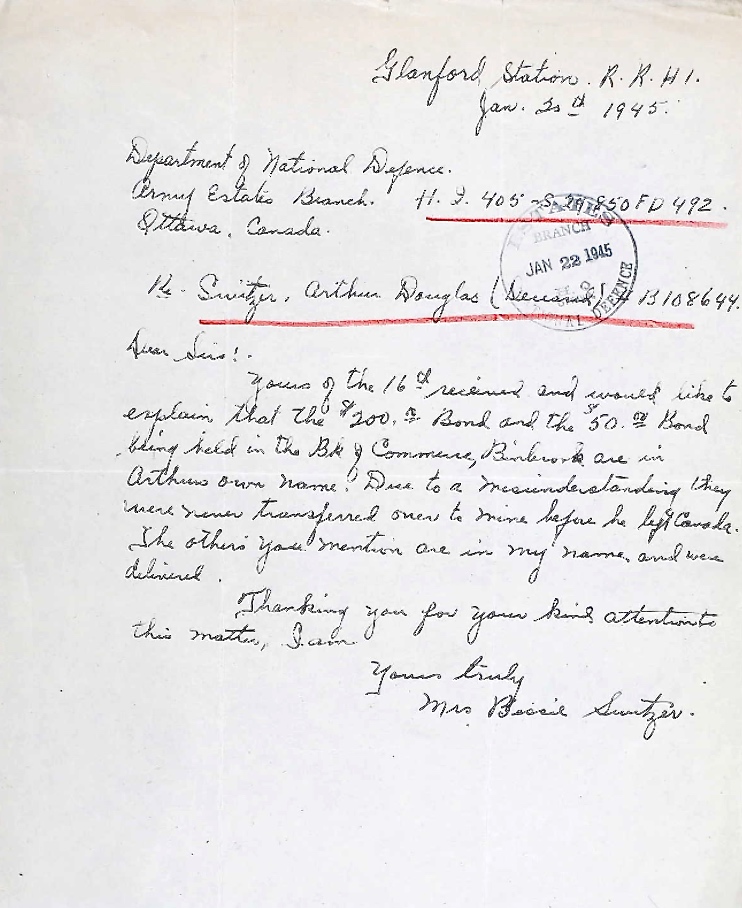 Glanford Station. R. R. # 1.
Jan. 20th 1945.
Department of National Defence.
Army Estates Branch. H. Q. 405-S-29,850 FD 492.
Ottawa, Canada.
ESTATES
BRANCH
JAN 22 1945
NATIONAL DEFENCE
Re- Switzer, Arthur Douglas (Deceased) # B108644.
Dear Sirs:-
Yours of the 16th received and would like to
explain that the $200.00 Bond and the $50.00 Bond
being held in the Bk of Commerce, Binbrook are in
Arthurs own name. Due to a misunderstanding they
were never transferred over to mine before he left Canada.
The others you mention are in my name, and were
delivered.
Thanking you for your kind attention to
this matter, I am
Yours truly
Mrs Bessie Switzer.